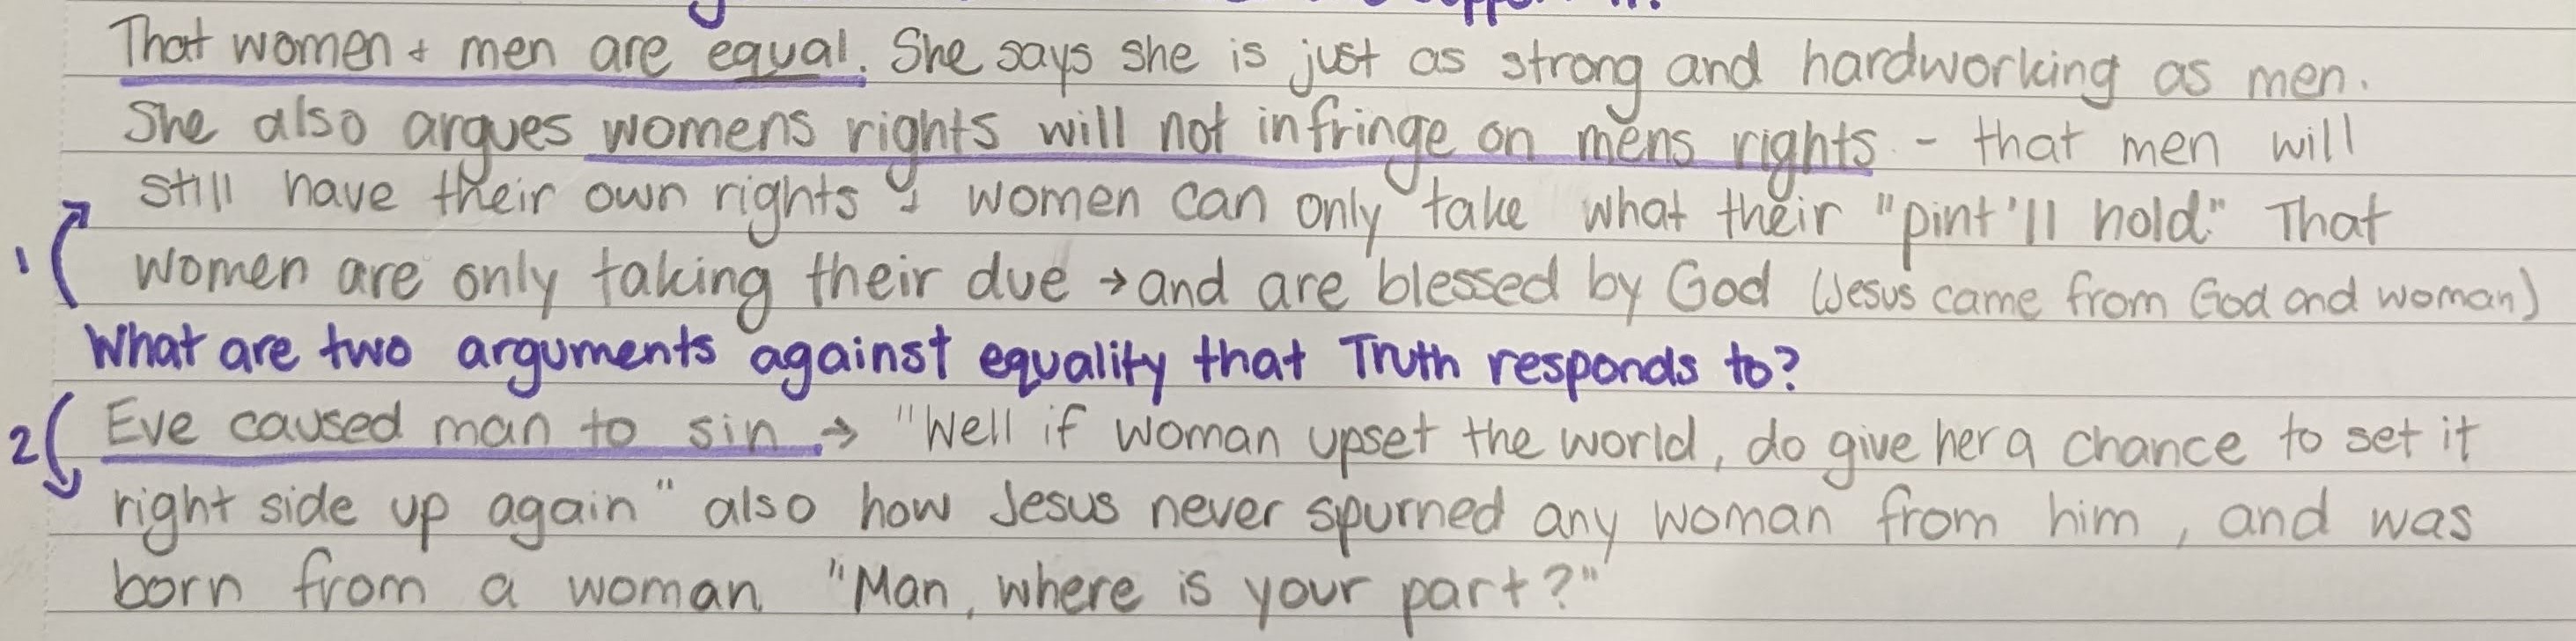 That women + men are equal. She says she is just as strong and hardworking as men.
She also argues womens rights will not infringe on mens rights - that men will
still have their own rights + women can only take what their "pint'll hold." That
1 women are only taking their due → and are blessed by God (Jesus came from God and woman)
What are two arguments against equality that Truth responds to?
2 Eve caused man to sin → "Well if woman upset the world, do give her a chance to set it
right side up again" also how Jesus never spurned any woman from him, and was
born from a woman "Man, where is your part?"